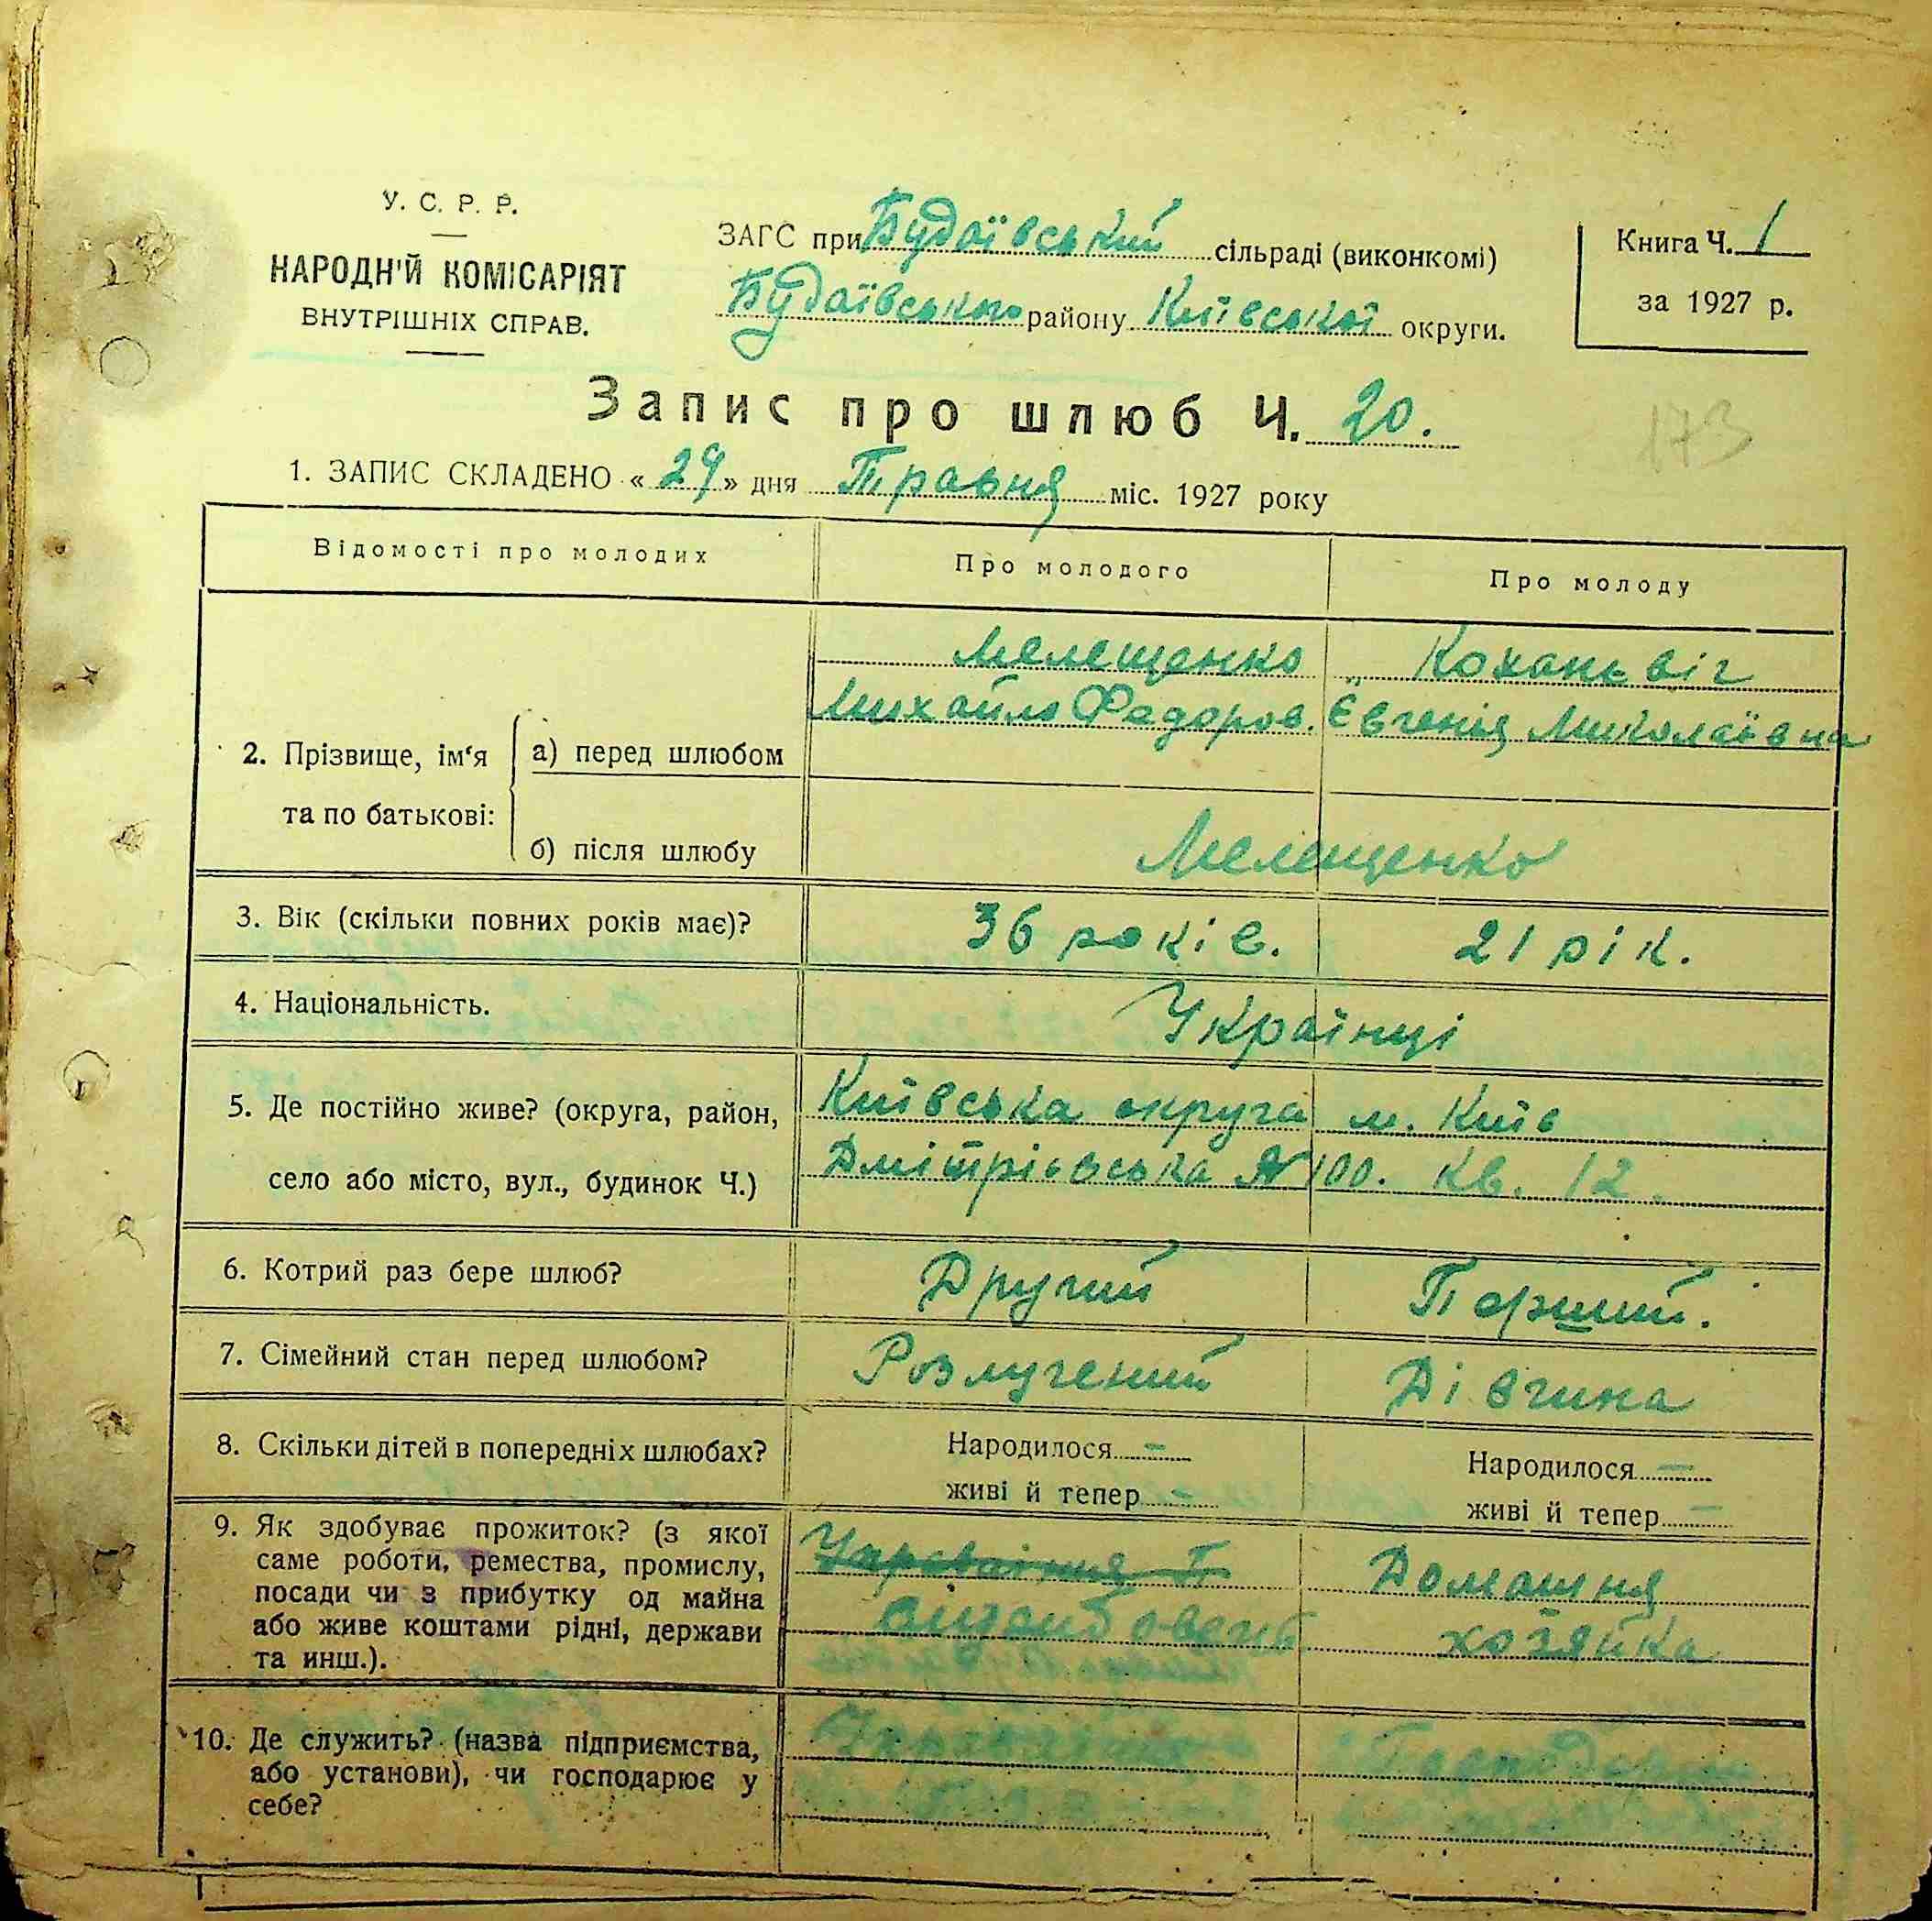 У. С. Р. Р.
НАРОДН'Й КОМІСАРІЯТ
ВНУТРІШНІХ СПРАВ.
ЗАГС при Будаївський сільраді (виконкомі)
Будаївського району Київської округи.
Книга Ч. 1
за 1927 р.
Запис про шлюб Ч. 20.
173
1. ЗАПИС СКЛАДЕНО « 29 » дня Травня міс. 1927 року
Відомості про молодих
Про молодого
Про молоду
2. Прізвище, ім'я та по батькові:
а) перед шлюбом
Мелещенко
Михайло Федоров.
Коханєвіч
Євгенія Миколаївна
б) після шлюбу
Мелещенко
3. Вік (скільки повних років має)?
36 років.
21 рік.
4. Національність.
Українці
5. Де постійно живе? (округа, район,
село або місто, вул., будинок Ч.)
Київська округа м. Київ
Дмітрієвська № 100. кв. 12.
6. Котрий раз бере шлюб?
Другий
Перший.
7. Сімейний стан перед шлюбом?
Розлучений
Дівчина
8. Скільки дітей в попередніх шлюбах?
Народилося –
живі й тепер –
Народилося –
живі й тепер –
9. Як здобуває прожиток? (з якої
саме роботи, ремества, промислу,
посади чи з прибутку од майна
або живе коштами рідні, держави
та инш.).
Домашня
хозяйка
10. Де служить? (назва підприємства,
або установи), чи господарює у
себе?